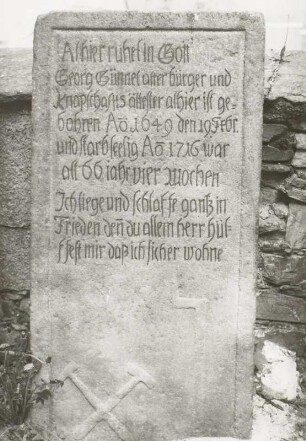 Alhier ruhet in Gott
Georg Gunnel alter burger und
Knapschafts ältester alhier ist ge-
bohren Aõ 1649 den 19 Febr.
und starb seelig Aõ 1716 war
alt 66 iahr vier wochen
Ich liege und schlaffe gantz in
Frieden den̄ du allein herr hül-
ffest mir daß ich sicher wohne